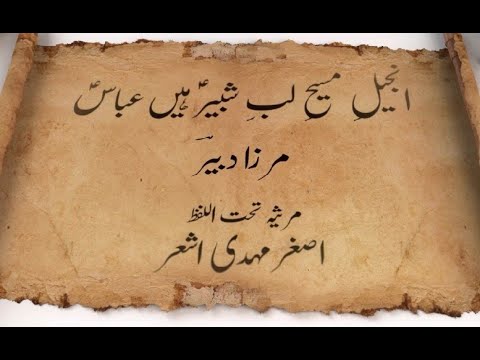 انجیلِ مسیحِ لبِ شبیرؑ ہیں عباسؑ
مرزا دبیر
مرثیہ تحت اللفظ
اصغر مہدی اشعر